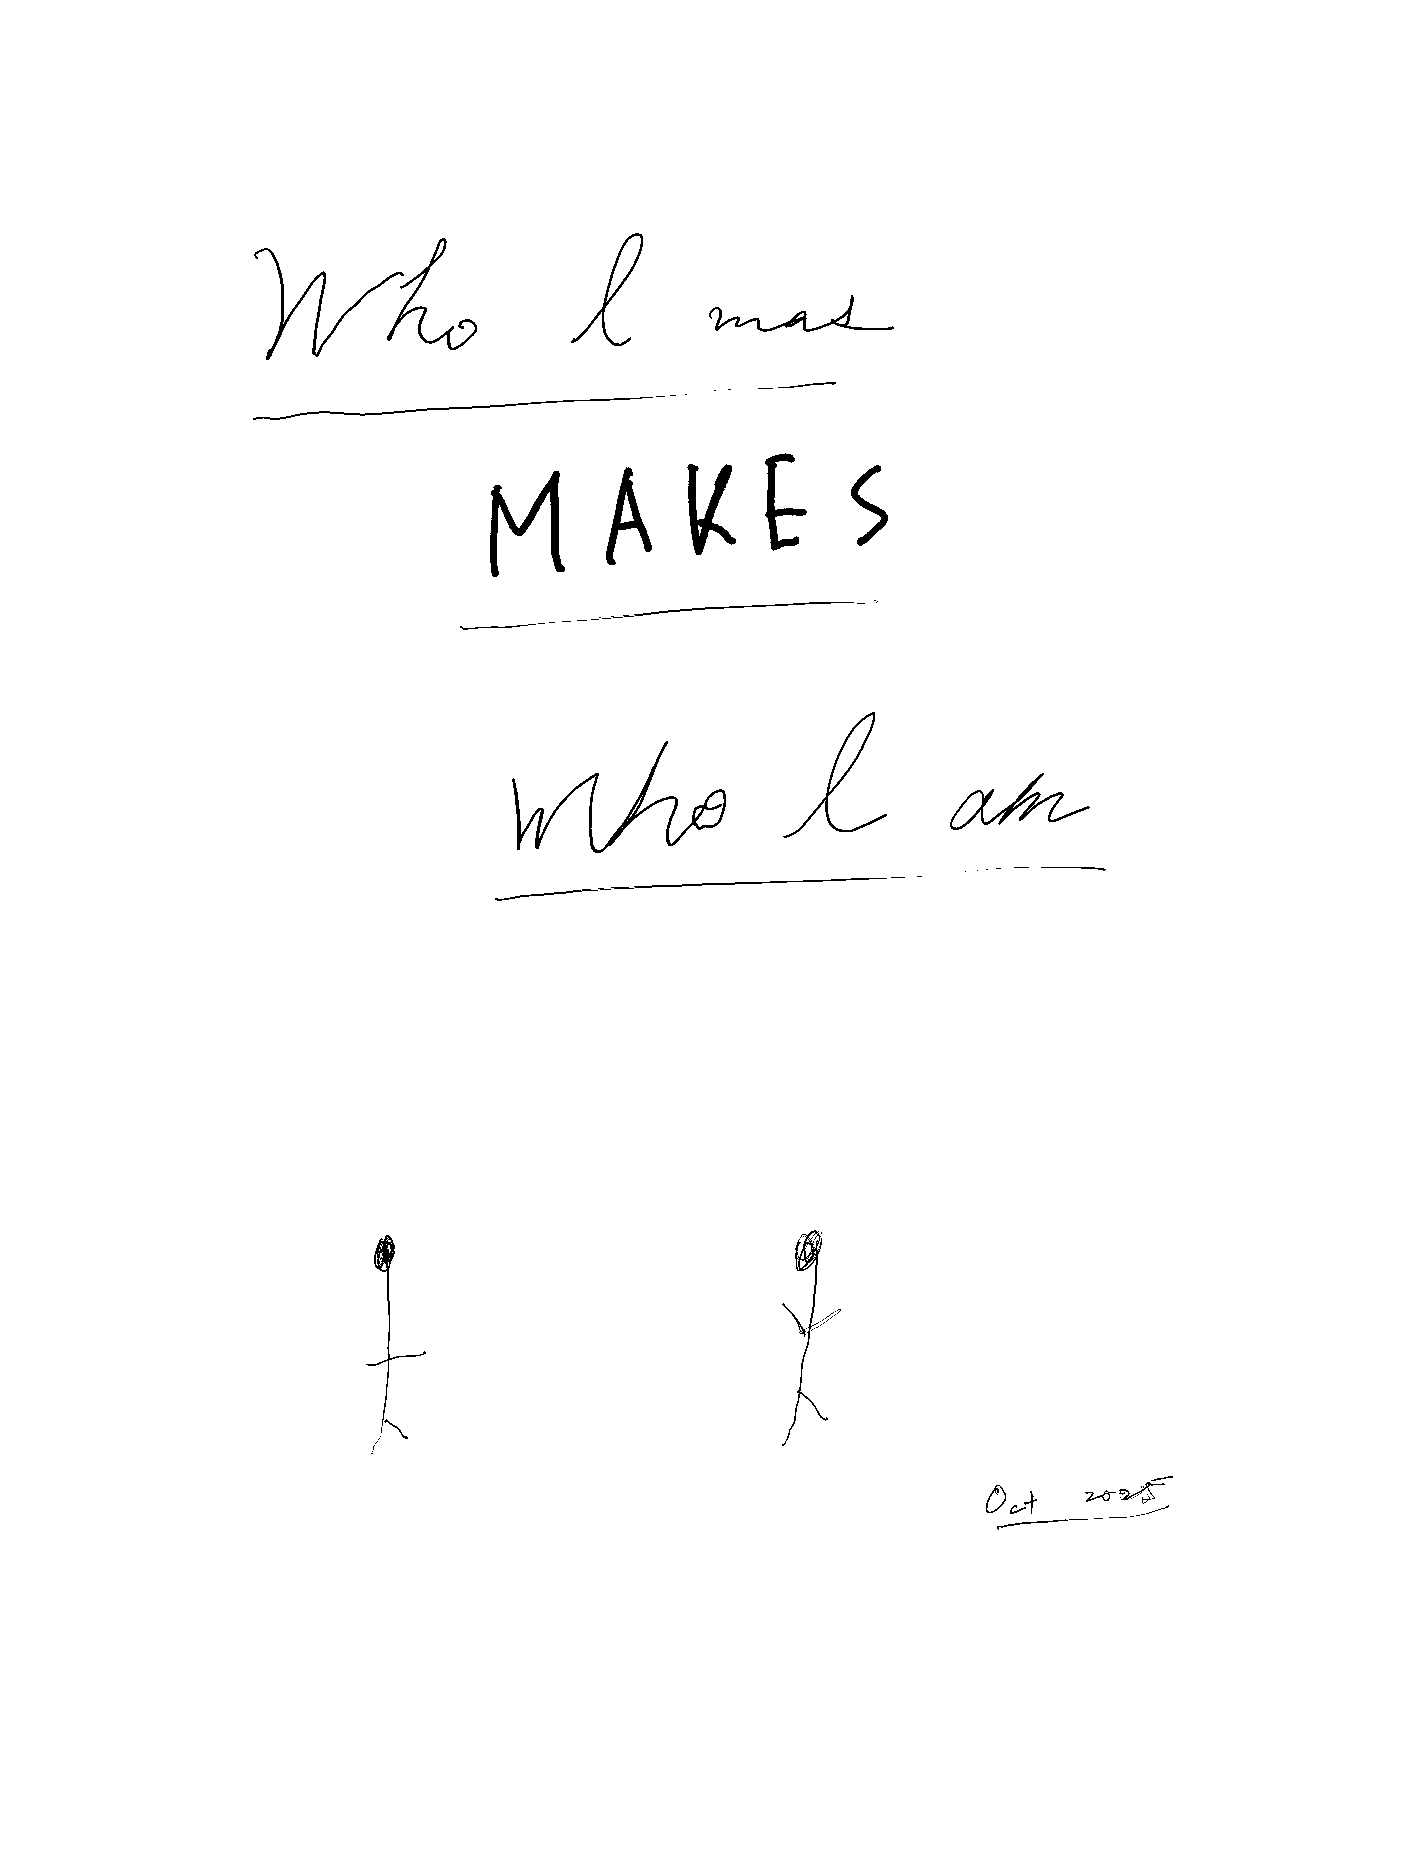 Who I was
MAKES
who I am
Oct 2025